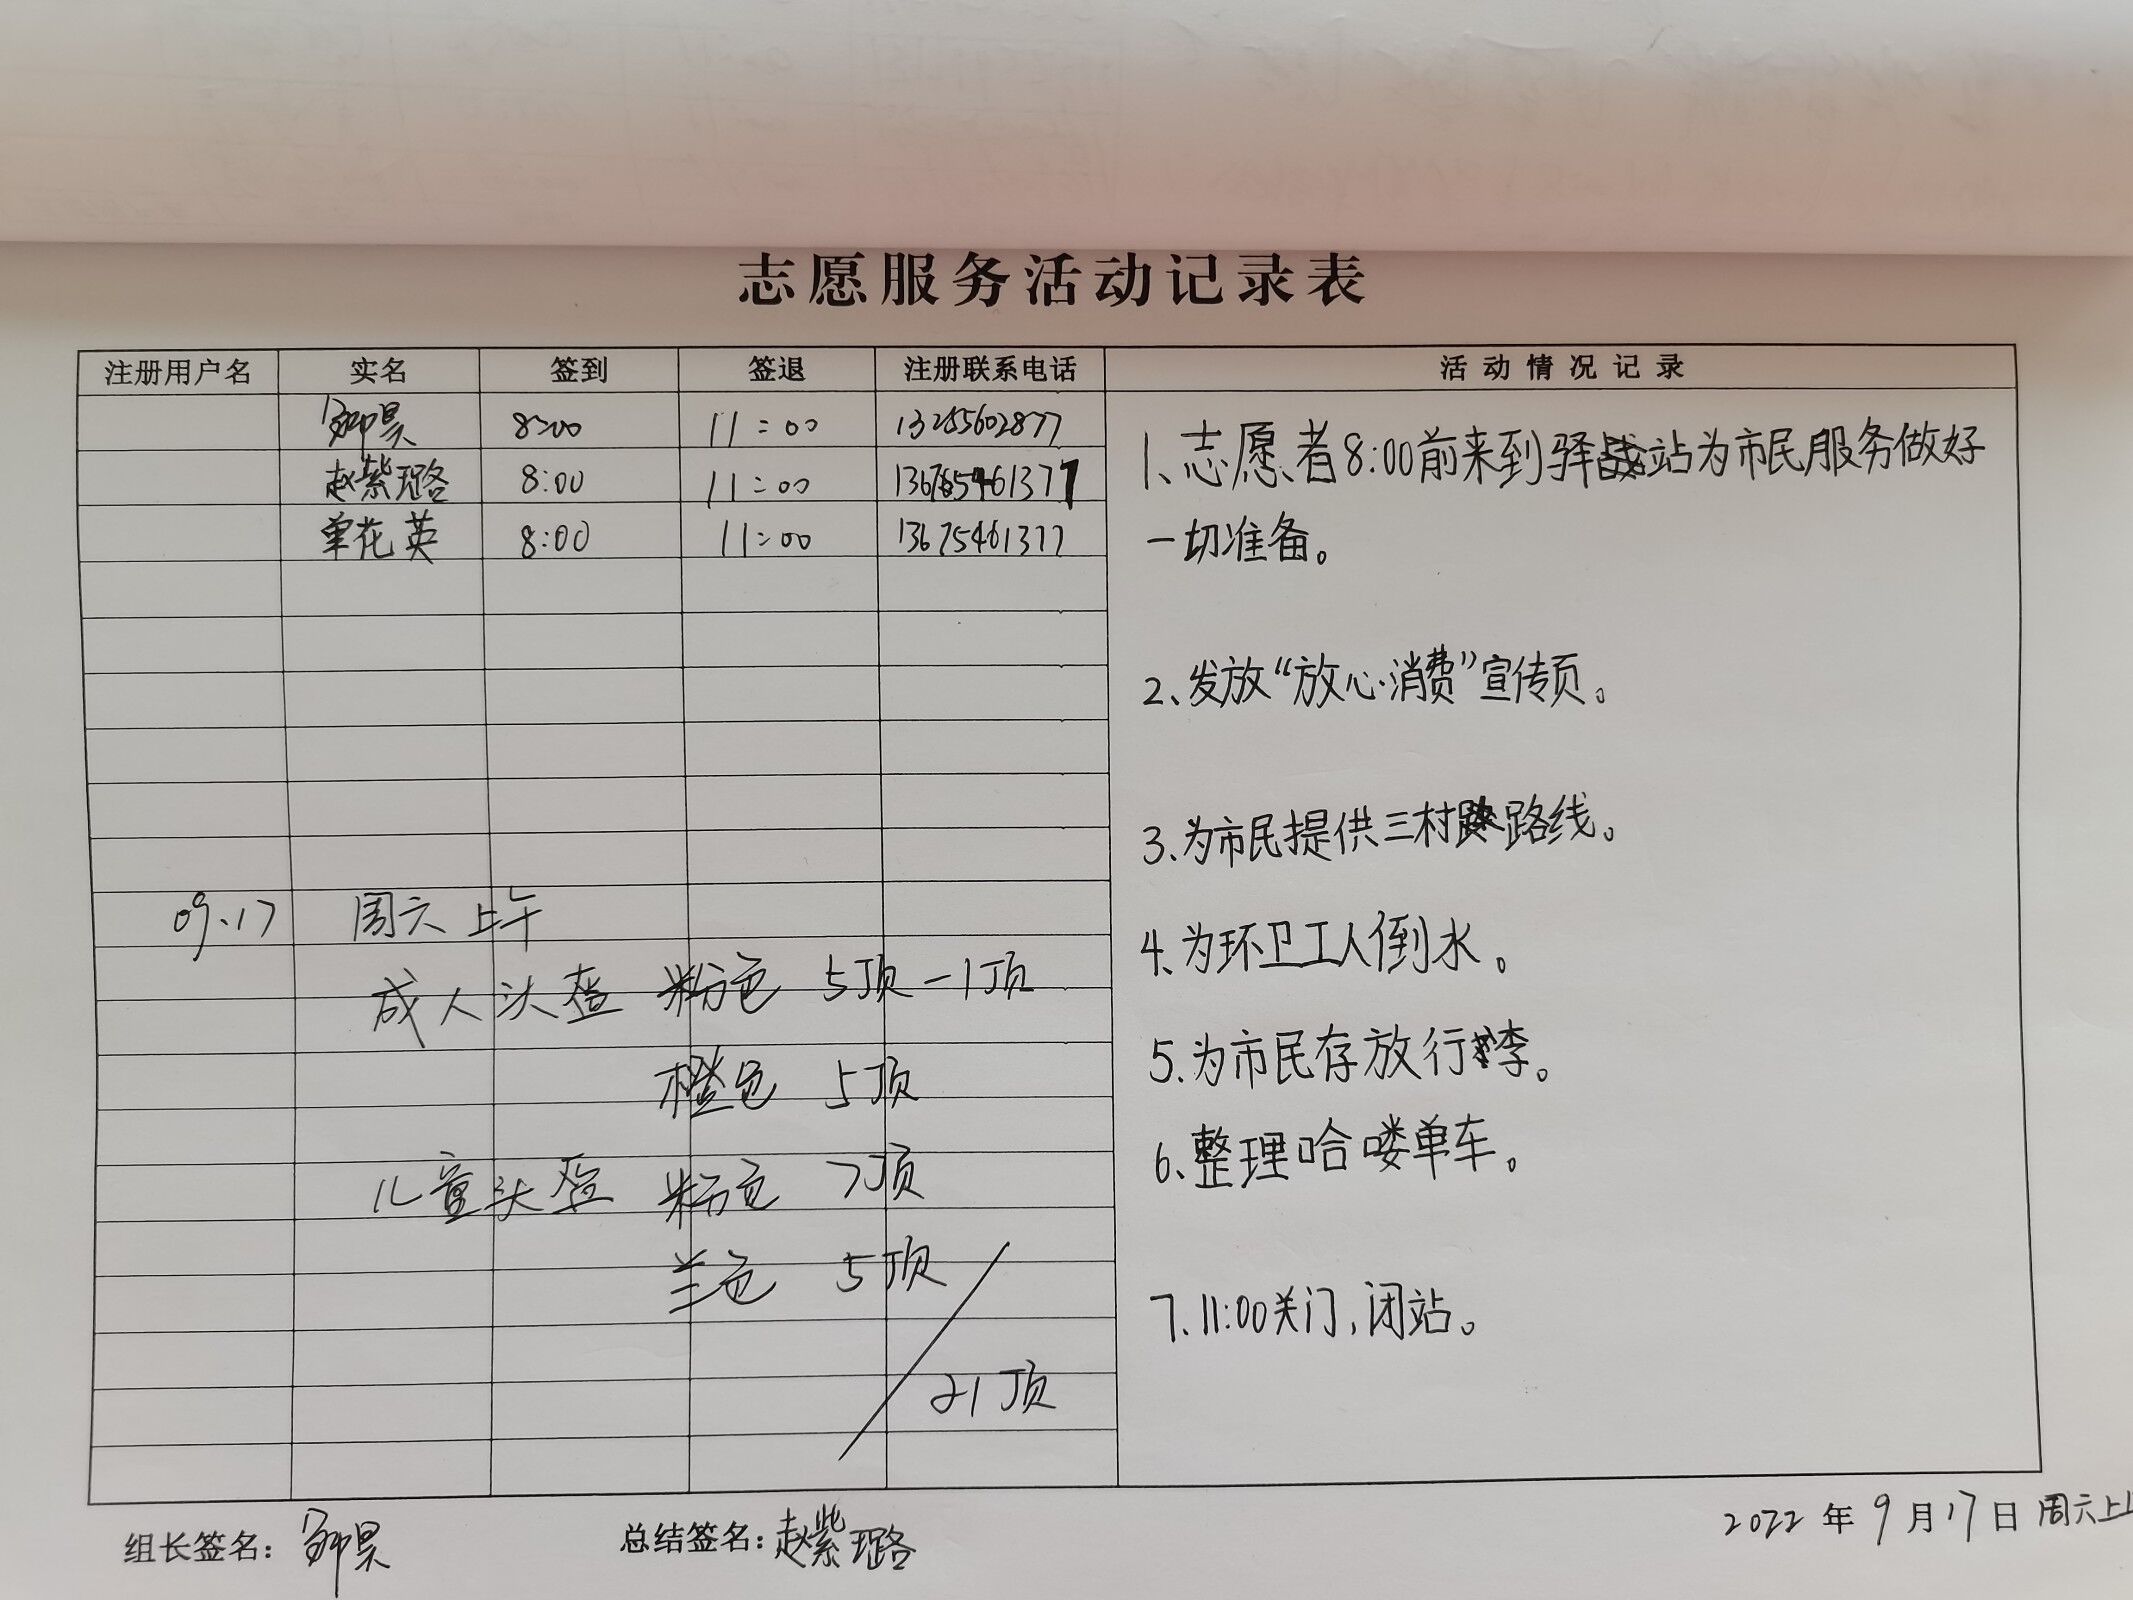 志愿服务活动记录表
注册用户名 实名 签到 签退 注册联系电话 活动情况记录
昊 8:00 11:00 13255602877
赵紫璐 8:00 11:00 13675461377
单花英 8:00 11:00 13675461377
1、志愿者8:00前来到驿站为市民服务做好
一切准备。
2、发放“放心消费”宣传页。
3、为市民提供三村路线。
4、为环卫工人倒水。
5、为市民存放行李。
6、整理哈喽单车。
7、11:00关门，闭站。
09.17 周六上午
成人头盔 粉色 5顶-1顶
橙色 5顶
儿童头盔 粉色 7顶
兰色 5顶
21顶
组长签名： 昊 总结签名：赵紫璐 2022年9月17日 周六上